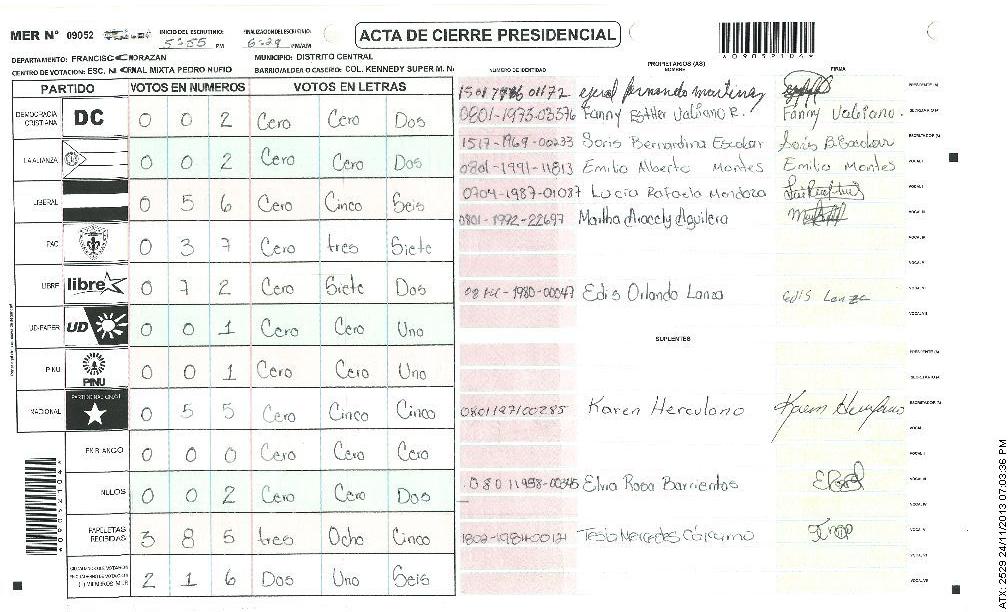 MER N° 09052
INICIO DEL ESCRUTINIO: 5:55 PM
FINALIZACION DEL ESCRUTINIO: PM/AM
ACTA DE CIERRE PRESIDENCIAL
*09052104*
DEPARTAMENTO: FRANCISCO MORAZAN
MUNICIPIO: DISTRITO CENTRAL
CENTRO DE VOTACION: ESC. MIXTA PEDRO NUFIO
BARRIO/ALDEA O CASERIO: COL. KENNEDY SUPER M. N
PARTIDO VOTOS EN NUMEROS VOTOS EN LETRAS
DEMOCRACIA CRISTIANA DC 0 0 2 Cero Cero Dos
LA ALIANZA 0 0 2 Cero Cero Dos
LIBERAL 0 5 6 Cero Cinco Seis
PAC 0 3 7 Cero tres Siete
LIBRE libre 0 7 2 Cero Siete Dos
UD-FAPER UD 0 0 1 Cero Cero Uno
PINU PINU 0 0 1 Cero Cero Uno
NACIONAL PARTIDO NACIONAL 0 5 5 Cero Cinco Cinco
EN BLANCO 0 0 0 Cero Cero Cero
NULOS 0 0 2 Cero Cero Dos
PAPELETAS RECIBIDAS 3 8 5 tres Ocho Cinco
2 1 6 Dos Uno Seis
*09052104*
NUMERO DE IDENTIDAD PROPIETARIOS (AS) NOMBRE FIRMA
fernando martinez PRESIDENTE (A)
0801-1975-03576 Fanny Esther Valiano R. Fanny Valiano. SECRETARIO (A)
1517-1969-00233 Soris Bernardina Escobar Soris B Escobar ESCRUTADOR (A)
0801-1991-11813 Emilio Alberto Montes Emilio Montes VOCAL I
0704-1987-01087 Lucia Rafaela Mendoza VOCAL II
0801-1992-22697 Martha Aracely Aguilera VOCAL III
VOCAL IV
VOCAL V
1980-00047 Edis Orlando Lanza Edis Lanza VOCAL VI
VOCAL VII
SUPLENTES
PRESIDENTE (A)
SECRETARIO (A)
0801197100285 Karen Herculano Karen Herculano ESCRUTADOR (A)
VOCAL I
VOCAL II
Elvia Rosa Barrientos VOCAL III
VOCAL IV
Mercedes Cárcamo VOCAL V
VOCAL VI
VOCAL VII
ATX: 2529 24/11/2013 07:03:36 PM